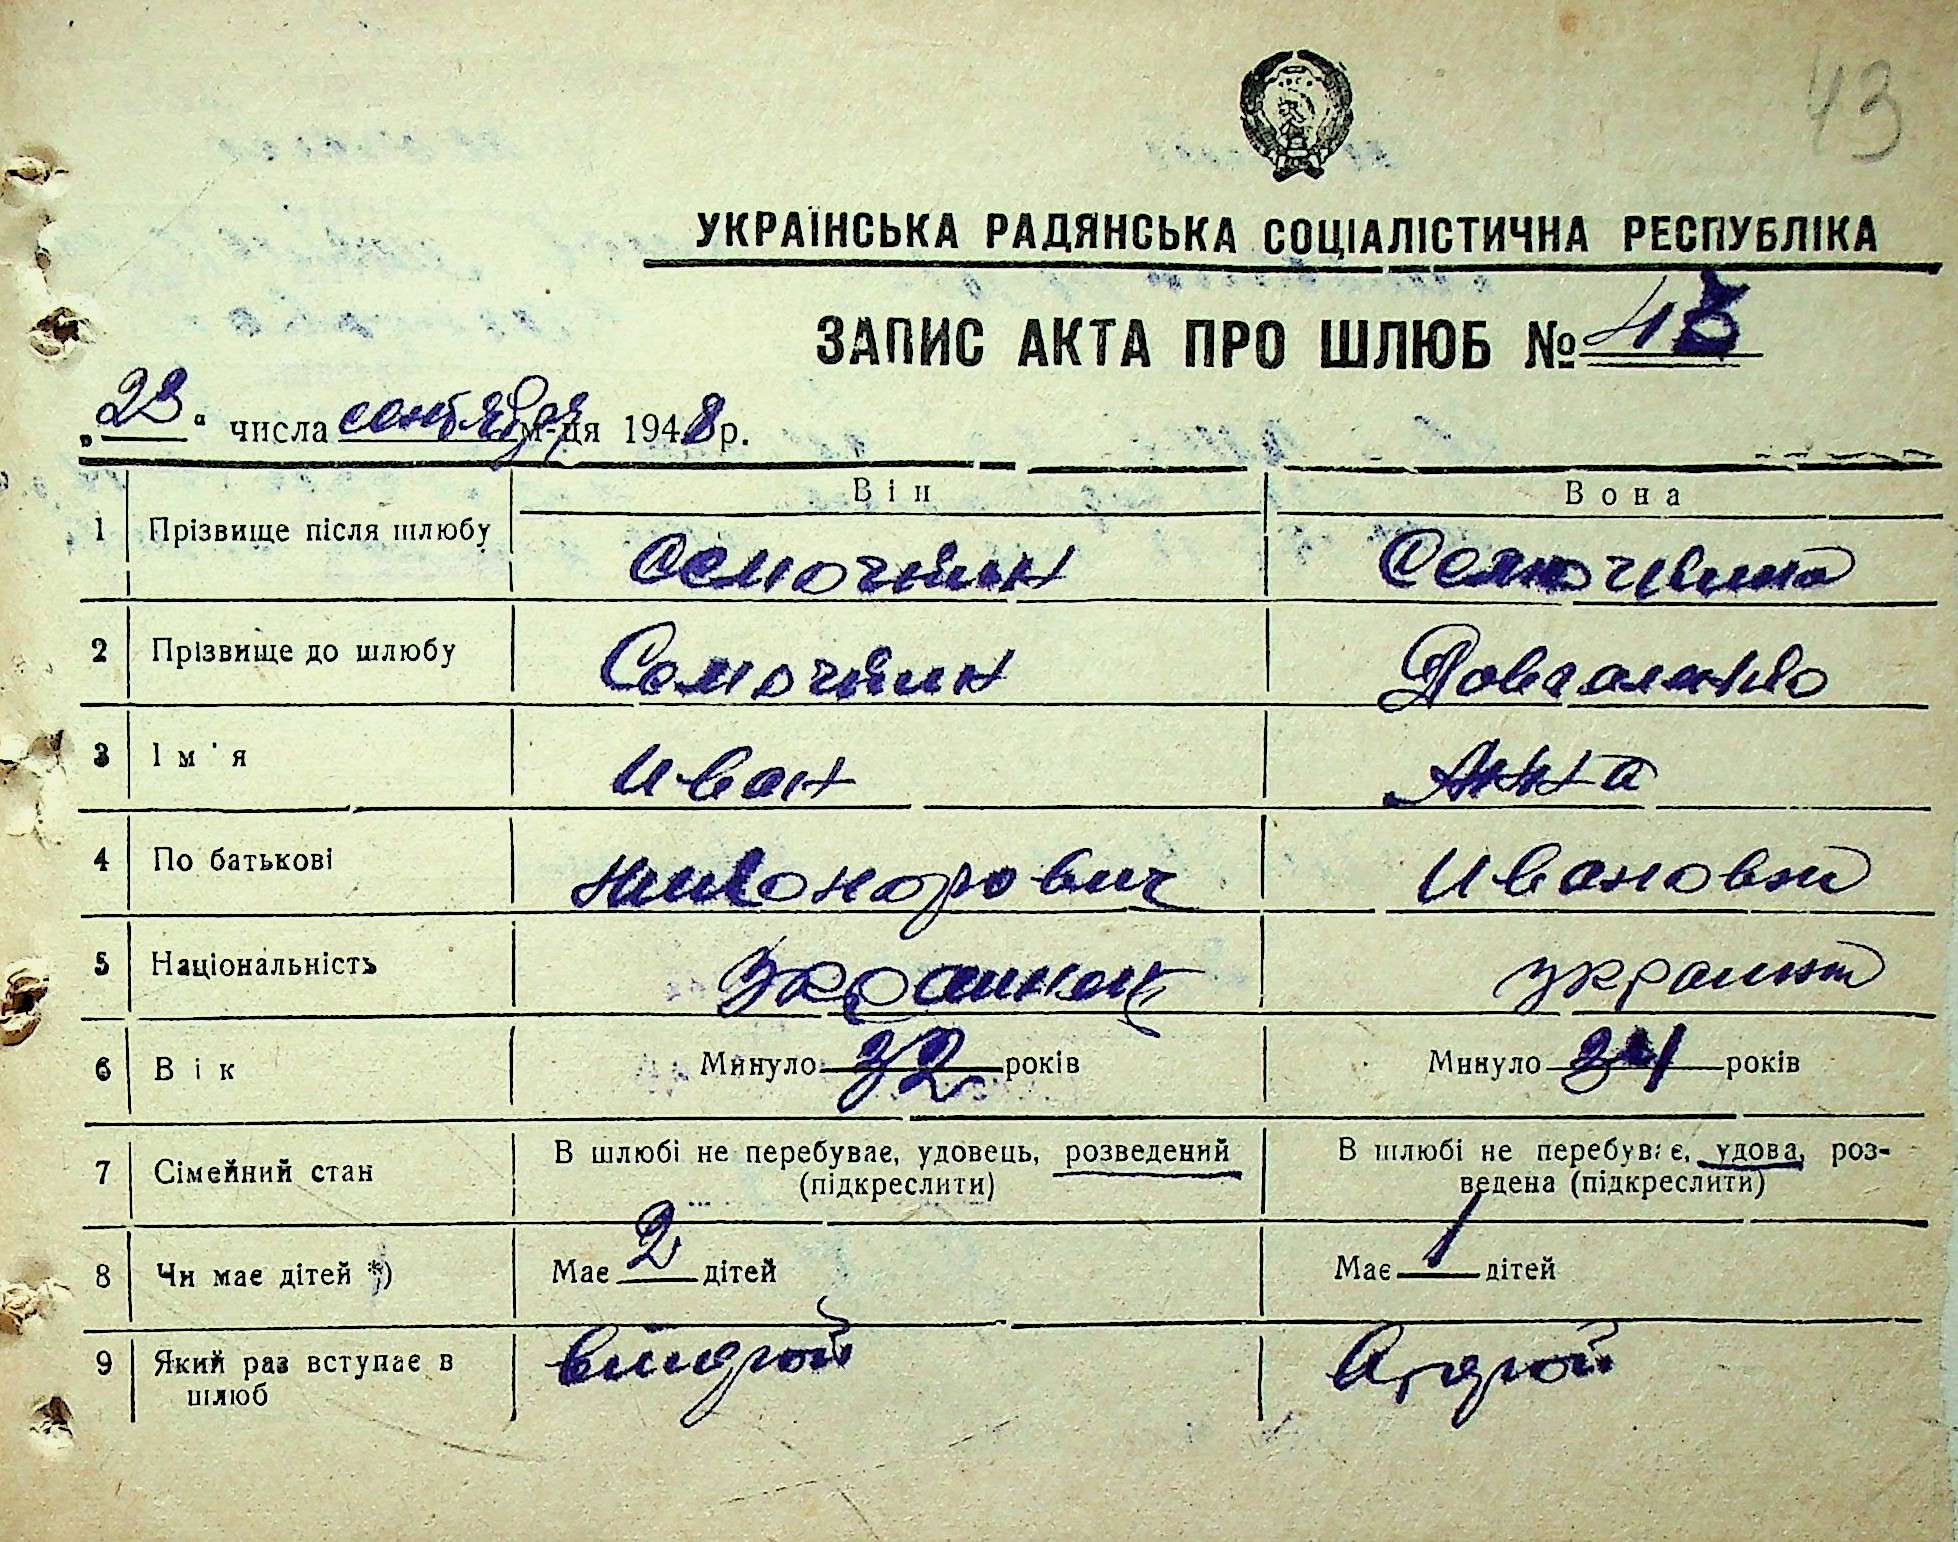 43
УКРАЇНСЬКА РАДЯНСЬКА СОЦІАЛІСТИЧНА РЕСПУБЛІКА
ЗАПИС АКТА ПРО ШЛЮБ № 43
„23“ числа сентября м-ця 1948 р.
Він Вона
1 Прізвище після шлюбу Семочкин Семочкина
2 Прізвище до шлюбу Семочкин Довгаленко
3 Ім'я Иван Анна
4 По батькові Никонорович Ивановна
5 Національність Украинец украинка
6 Вік Минуло 32 років Минуло років
7 Сімейний стан В шлюбі не перебуває, удовець, розведений В шлюбі не перебуває, удова, роз-
(підкреслити) ведена (підкреслити)
8 Чи має дітей *) Має 2 дітей Має 1 дітей
9 Який раз вступає в второй второй
шлюб